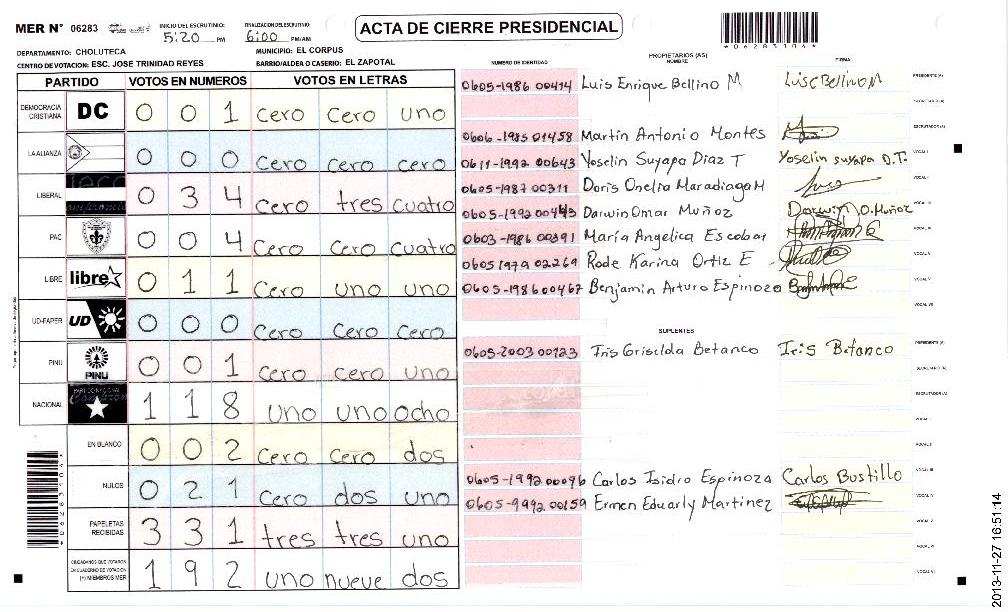 MER N° 06283 INICIO DEL ESCRUTINIO: 5:20 PM FINALIZACION DEL ESCRUTINIO: 6:00 PM/AM ACTA DE CIERRE PRESIDENCIAL
*06283104*
DEPARTAMENTO: CHOLUTECA MUNICIPIO: EL CORPUS
CENTRO DE VOTACION: ESC. JOSE TRINIDAD REYES BARRIO/ALDEA O CASERIO: EL ZAPOTAL
PARTIDO VOTOS EN NUMEROS VOTOS EN LETRAS
DEMOCRACIA CRISTIANA DC 0 0 1 cero cero uno
LA ALIANZA 0 0 0 cero cero cero
LIBERAL 0 3 4 cero tres cuatro
PAC 0 0 4 cero cero cuatro
LIBRE libre 0 1 1 cero uno uno
UD-FAPER UD 0 0 0 cero cero cero
PINU PINU 0 0 1 cero cero uno
NACIONAL 1 1 8 uno uno ocho
EN BLANCO 0 0 2 cero cero dos
NULOS 0 2 1 cero dos uno
PAPELETAS RECIBIDAS 3 3 1 tres tres uno
CIUDADANOS QUE VOTARON EN CUADERNO DE VOTACION (+) MIEMBROS MER 1 9 2 uno nueve dos
NUMERO DE IDENTIDAD PROPIETARIOS (AS) NOMBRE FIRMA
0605-1986 00414 Luis Enrique Bellino M Luis E Bellino M PRESIDENTE(A)
SECRETARIO(A)
0606-1985 01458 Martin Antonio Montes ESCRUTADOR(A)
0611-1992 00643 Yoselin Suyapa Diaz T Yoselin suyapa D.T. VOCAL I
0605-1987 00311 Doris Onelia Maradiaga M
0605-1992 00443 Darwin Omar Muñoz Darwin O. Muñoz
0603-1986 00391 María Angelica Escobar
0605 1979 02269 Rode Karina Ortiz E
0605-1986 00467 Benjamin Arturo Espinoza
SUPLENTES
0605-2003 00123 Iris Griselda Betanco Iris Betanco PRESIDENTE(A)
SECRETARIO(A)
ESCRUTADOR(A)
0605-1992 00096 Carlos Isidro Espinoza Carlos Bustillo
0605-9992 00159 Ermen Eduarly Martinez
2013-11-27 16:51:14